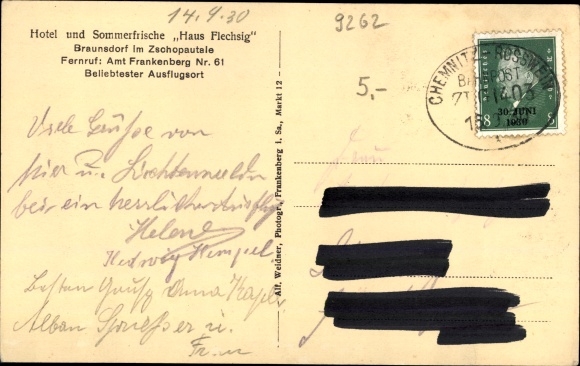 14.9.30
9262
Hotel und Sommerfrische „Haus Flechsig"
Braunsdorf im Zschopautale
Fernruf: Amt Frankenberg Nr. 61
Beliebtester Ausflugsort
5,-
CHEMNITZ - ROSSWEIN
BAHNPOST
30. JUNI
1930
8
Alf. Weidner, Photogr., Frankenberg i. Sa., Markt 12
Viele Grüße von
hier u. Lichtenwalde
bei ein herrlicher
Helene
Hedwig Hempel
Besten Gruß Anna
Alban u.
Frau